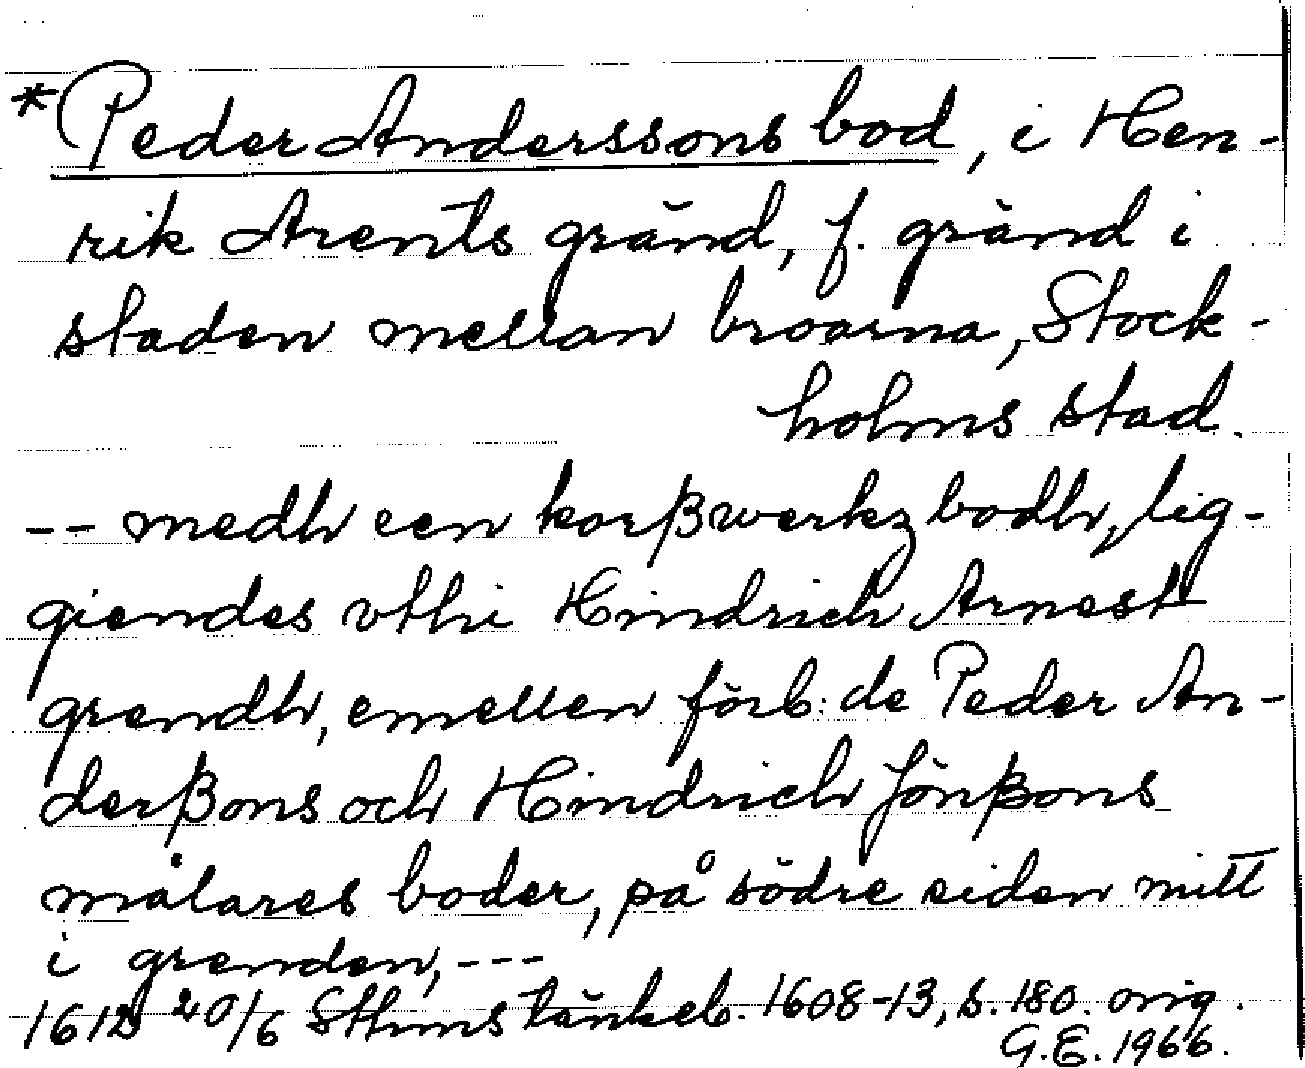 *Peder Anderssons bod, i Hen-
rik Arents gränd, f. gränd i
staden mellan broarna, Stock-
holms stad.
-- medh een korßwerkz bodh, lig-
giendes vthi Hindrich Arnest
grendh, emellen förb:de Peder An-
derßons och Hindrich Jönßons
målares boder, på södre siden mitt
i grenden, ---
1612 20/6 Sthms tänkeb. 1608-13, s. 180. orig.
G.E. 1966.